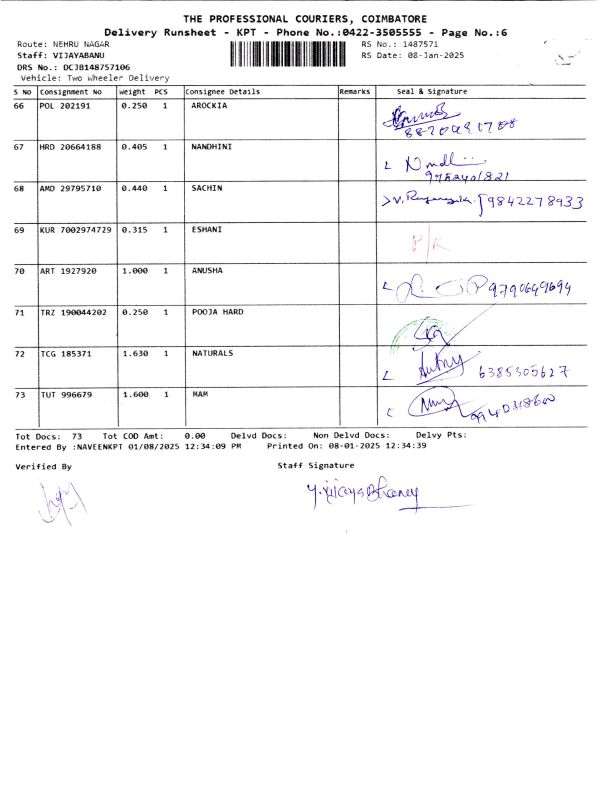 THE PROFESSIONAL COURIERS, COIMBATORE
Delivery Runsheet - KPT - Phone No.:0422-3505555 - Page No.:6
Route: NEHRU NAGAR RS No.: 1487571
Staff: VIJAYABANU RS Date: 08-Jan-2025
DRS No.: DCJB148757106
Vehicle: Two Wheeler Delivery
S No Consignment No Weight PCS Consignee Details Remarks Seal & Signature
66 POL 202191 0.250 1 AROCKIA
67 HRD 20664188 0.405 1 NANDHINI
68 AMD 29795710 0.440 1 SACHIN 9842278933
69 KUR 7002974729 0.315 1 ESHANI
70 ART 1927920 1.000 1 ANUSHA 9790649694
71 TRZ 190044202 0.250 1 POOJA HARD
72 TCG 185371 1.630 1 NATURALS 6385305627
73 TUT 996679 1.600 1 MAM
Tot Docs: 73 Tot COD Amt: 0.00 Delvd Docs: Non Delvd Docs: Delvy Pts:
Entered By :NAVEENKPT 01/08/2025 12:34:09 PM Printed On: 08-01-2025 12:34:39
Verified By Staff Signature